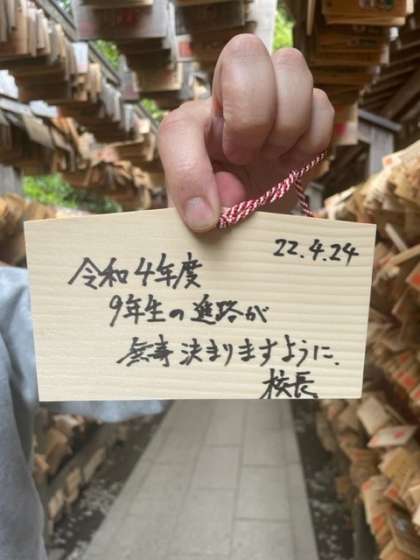 22.4.24
令和4年度
9年生の進路が
無事決まりますように、
校長